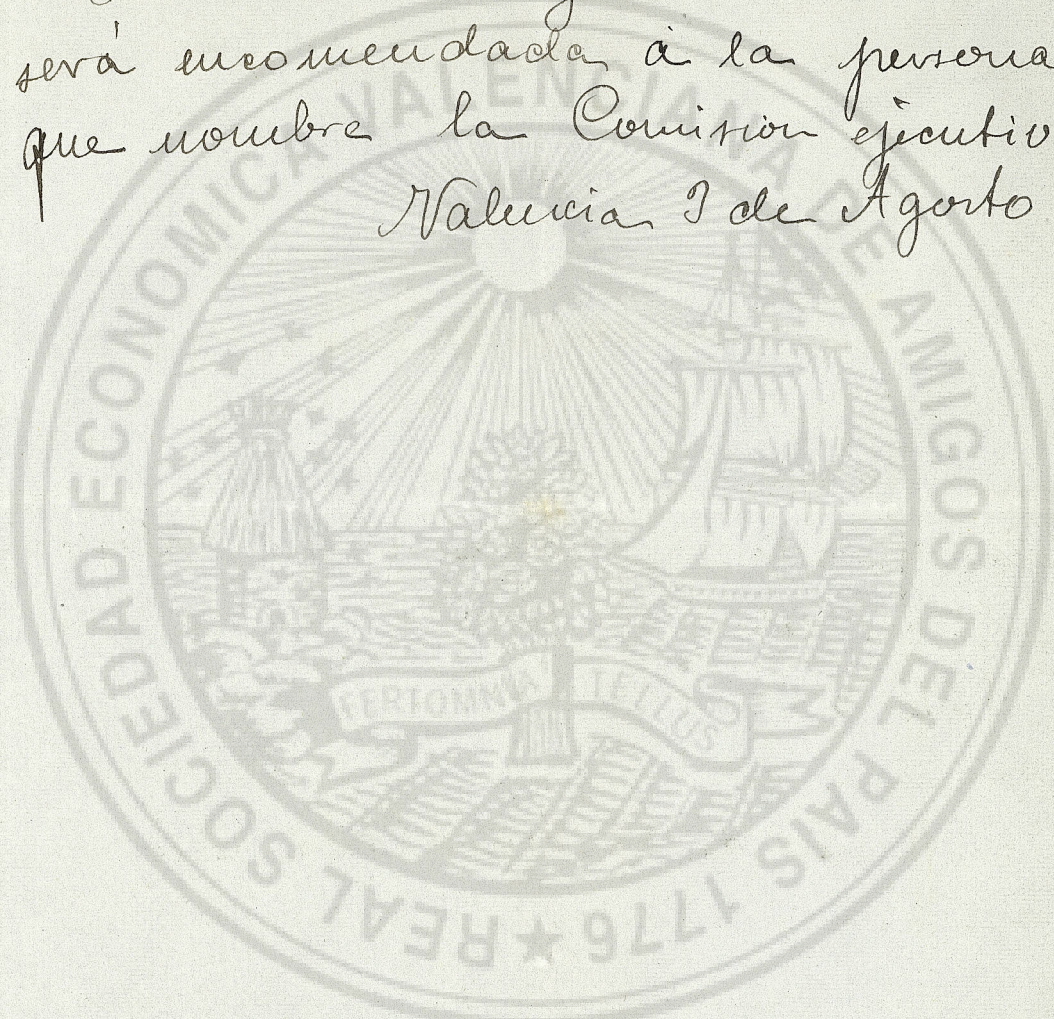 será encomendada à la persona
que nombre la Comision ejecutiv
Valencia 3 de Agosto
REAL SOCIEDAD ECONOMICA VALENCIANA DE AMIGOS DEL PAIS 1776
FERT OMNIA TELLUS